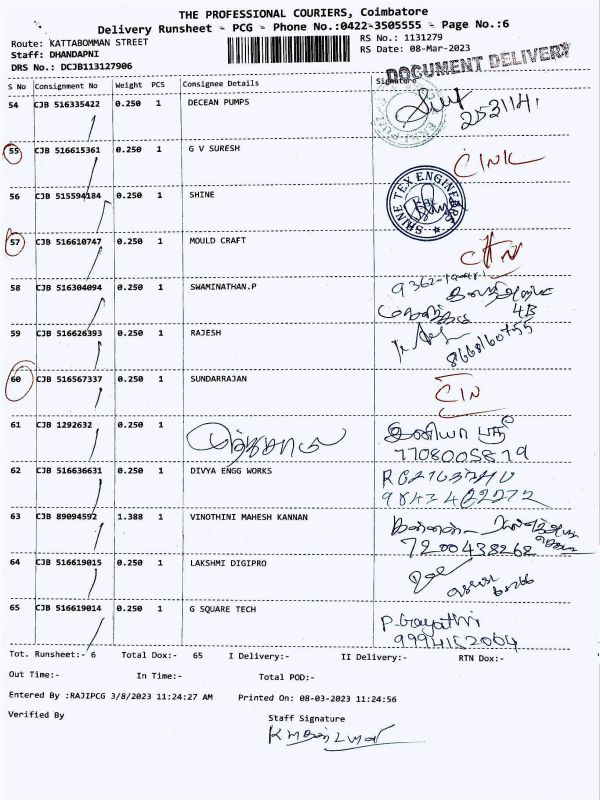 THE PROFESSIONAL COURIERS, Coimbatore
Delivery Runsheet - PCG - Phone No.:0422-3505555 - Page No.:6
Route: KATTABOMMAN STREET
RS No.: 1131279
Staff: DHANDAPNI
RS Date: 08-Mar-2023
DRS No.: DCJB113127906
DOCUMENT DELIVERY
S No Consignment No Weight PCS Consignee Details Signature
54 CJB 516335422 0.250 1 DECEAN PUMPS
2531141
55 CJB 516615361 0.250 1 G V SURESH
56 CJB 515594184 0.250 1 SHINE
SHINE TEX ENGINEERS
57 CJB 516610747 0.250 1 MOULD CRAFT
58 CJB 516304094 0.250 1 SWAMINATHAN.P
4B
59 CJB 516626393 0.250 1 RAJESH
8668160755
60 CJB 516567337 0.250 1 SUNDARRAJAN
61 CJB 1292632 0.250 1
7708005819
62 CJB 516636631 0.250 1 DIVYA ENGG WORKS
63 CJB 89094592 1.388 1 VINOTHINI MAHESH KANNAN
7200438262
64 CJB 516619015 0.250 1 LAKSHMI DIGIPRO
65 CJB 516619014 0.250 1 G SQUARE TECH
P. Gayathri
9994152064
Tot. Runsheet:- 6 Total Dox:- 65 I Delivery:- II Delivery:- RTN Dox:-
Out Time:- In Time:- Total POD:-
Entered By :RAJIPCG 3/8/2023 11:24:27 AM Printed On: 08-03-2023 11:24:56
Verified By
Staff Signature